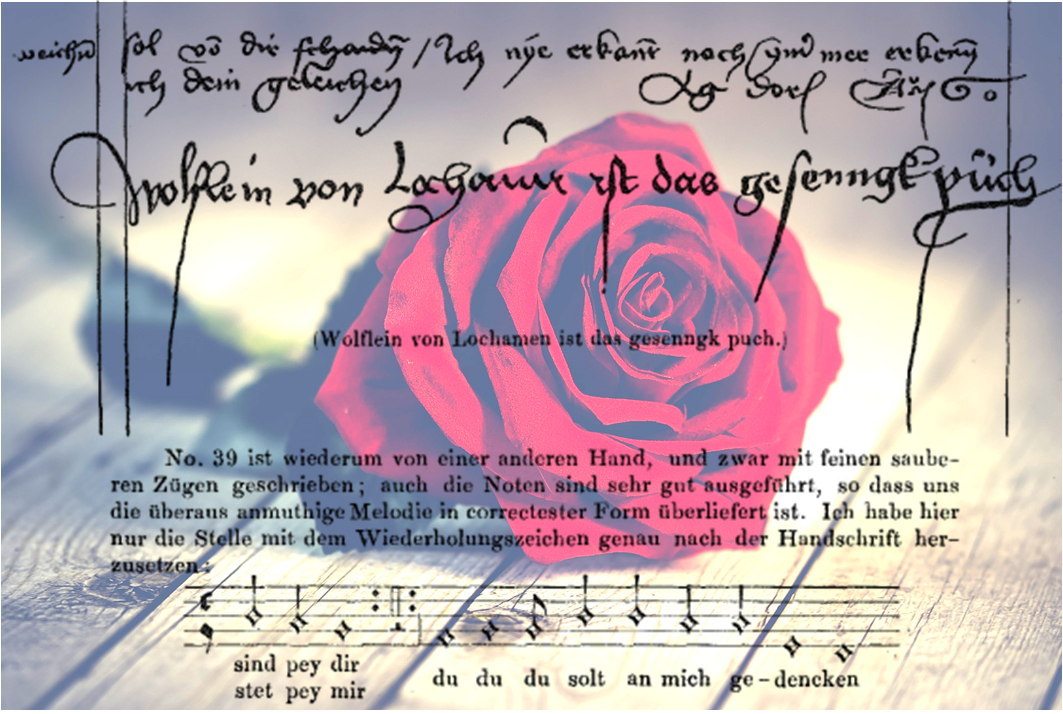 sol von die schandn / Ich nye erkant noch ymm mee erkenn
ich dein geleichen
Wolflein von Lochamen ist das gesenngk püch
(Wolflein von Lochamen ist das gesenngk puch.)
No. 39 ist wiederum von einer anderen Hand, und zwar mit feinen saube-
ren Zügen geschrieben; auch die Noten sind sehr gut ausgeführt, so dass uns
die überaus anmuthige Melodie in correctester Form überliefert ist. Ich habe hier
nur die Stelle mit dem Wiederholungszeichen genau nach der Handschrift her-
zusetzen:
sind pey dir
stet pey mir
du du du solt an mich ge-dencken